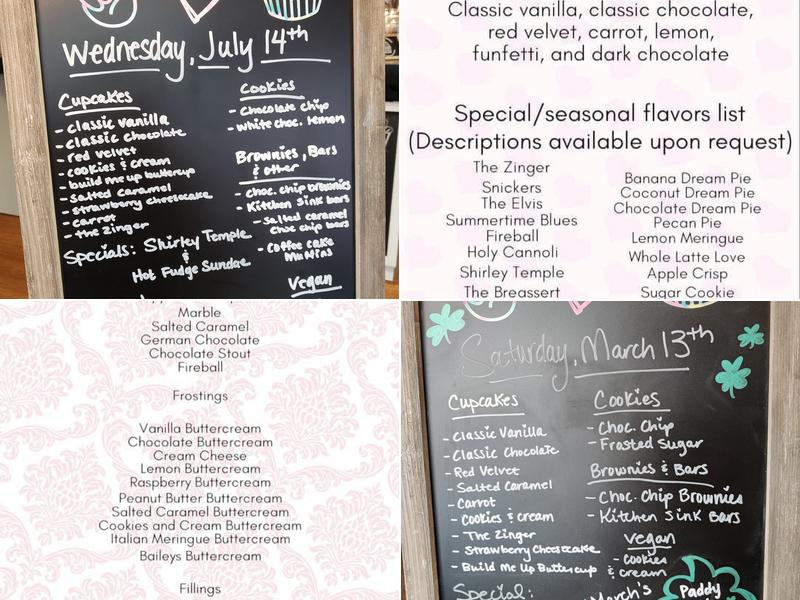 Wednesday, July 14th
Cupcakes
- classic vanilla
- classic chocolate
- red velvet
- cookies & cream
- build me up buttercup
- salted caramel
- strawberry cheesecake
- carrot
- the zinger
Specials: Shirley Temple
Hot Fudge Sundae
Cookies
- Chocolate chip
- white choc. lemon
Brownies, Bars
& other
- choc. chip brownies
- Kitchen sink bars
- salted caramel
choc chip bars
- coffee cake
muffins
Vegan
Classic vanilla, classic chocolate,
red velvet, carrot, lemon,
funfetti, and dark chocolate
Special/seasonal flavors list
(Descriptions available upon request)
The Zinger
Snickers
The Elvis
Summertime Blues
Fireball
Holy Cannoli
Shirley Temple
The Breassert
Banana Dream Pie
Coconut Dream Pie
Chocolate Dream Pie
Pecan Pie
Lemon Meringue
Whole Latte Love
Apple Crisp
Sugar Cookie
Marble
Salted Caramel
German Chocolate
Chocolate Stout
Fireball
Frostings
Vanilla Buttercream
Chocolate Buttercream
Cream Cheese
Lemon Buttercream
Raspberry Buttercream
Peanut Butter Buttercream
Salted Caramel Buttercream
Cookies and Cream Buttercream
Italian Meringue Buttercream
Baileys Buttercream
Fillings
Saturday, March 13th
Cupcakes
- Classic Vanilla
- Classic Chocolate
- Red Velvet
- Salted Caramel
- Carrot
- Cookies & cream
- The Zinger
- Strawberry Cheesecake
- Build Me Up Buttercup
Special:
March's
Cookies
- Choc. Chip
- Frosted Sugar
Brownies & Bars
- Choc. Chip Brownies
- Kitchen Sink Bars
Vegan
- Cookies
& cream
Paddy